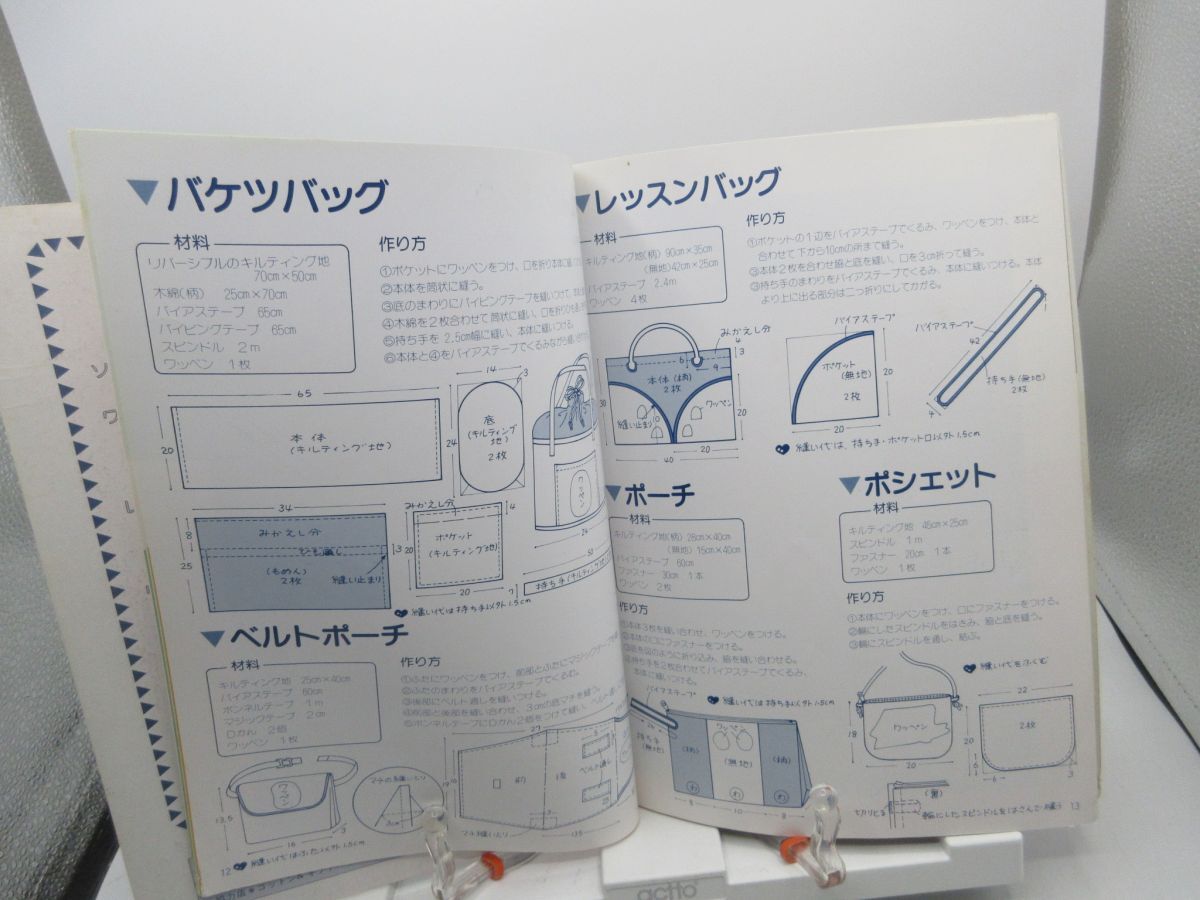 ▼バケツバッグ
材料
リバーシブルのキルティング地
70cm×50cm
木綿(柄) 25cm×70cm
バイアステープ 65cm
パイピングテープ 65cm
スピンドル 2m
ワッペン 1枚
作り方
①ポケットにワッペンをつけ、口を折り本体に縫い
②本体を筒状に縫う。
③底のまわりにパイピングテープを縫いつけて、
④木綿を2枚合わせて筒状に縫い、口を折り
⑤持ち手を2.5cm幅に縫い、本体に縫いつける。
⑥本体と④をバイアステープでくるみながら
65
20
本体
(キルティング地)
14
3
24
底
(キルティング
地)
2枚
ワッペン
24
34
8
25
みかえし分
ひも通し
3
(もめん)
2枚
縫い止まり
みかえし分
4
20
ポケット
(キルティング地)
20
50
7
持ち手(キルティング
縫い代は持ち手以外1.5cm
▼ベルトポーチ
材料
キルティング地 25cm×40cm
バイアステープ 60cm
ボンネルテープ 1m
マジックテープ 2cm
Dかん 2個
ワッペン 1枚
作り方
①ふたにワッペンをつけ、前部とふたにマジックテープを
②ふたのまわりをバイアステープでくるむ。
③後部にベルト通しを縫いつける。
④前部と後部を縫い合わせ、3cmの底マチを縫う。
⑤ボンネルテープにDかん2個をつけて縫い、
ワッペン
13.5
16
3
マチの縫いかた
3cm
27
前
ベルト通し
マチ縫いどまり
13.5
縫い代はふた以外1.5cm
12
▼レッスンバッグ
材料
キルティング地(柄) 90cm×35cm
(無地)42cm×25cm
バイアステープ 2.4m
ワッペン 4枚
作り方
①ポケットの1辺をバイアステープでくるみ、ワッペンをつけ、本体と
合わせて下から10cmの所まで縫う。
③本体2枚を合わせ脇と底を縫い、口を3cm折って縫う。
③持ち手のまわりをバイアステープでくるみ、本体に縫いつける。本体
より上に出る部分は二つ折りにしてかがる。
みかえし分
4
3
6
9
本体(柄)
2枚
30
ワッペン
縫い止まり
20
20
40
バイアステープ
ポケット
(無地)
2枚
20
20
バイアステープ
42
持ち手(無地)
2枚
4
縫い代は、持ち手・ポケット口以外1.5cm
▼ポーチ
材料
キルティング地(柄) 28cm×40cm
(無地) 15cm×40cm
バイアステープ 60cm
ファスナー 30cm 1本
ワッペン 2枚
作り方
①本体3枚を縫い合わせ、ワッペンをつける。
②本体の口にファスナーをつける。
③底を図のように折り込み、脇を縫い合わせる。
④持ち手を2枚合わせてバイアステープでくるみ、
本体に縫いつける。
バイアステープ
縫い代は持ち手以外1.5cm
持ち手
(無地)
(柄)
ワッペン
(無地)
(柄)
わ
わ
わ
8
10
8
▼ポシェット
材料
キルティング地 45cm×25cm
スピンドル 1m
ファスナー 20cm 1本
ワッペン 1枚
作り方
①本体にワッペンをつけ、口にファスナーをつける。
②輪にしたスピンドルをはさみ、脇と底を縫う。
③輪にスピンドルを通し、結ぶ。
縫い代をふくむ
18
ワッペン
20
22
20
2枚
16
6
3
(裏)
輪にしたスピンドルをはさんで縫う
13
actto